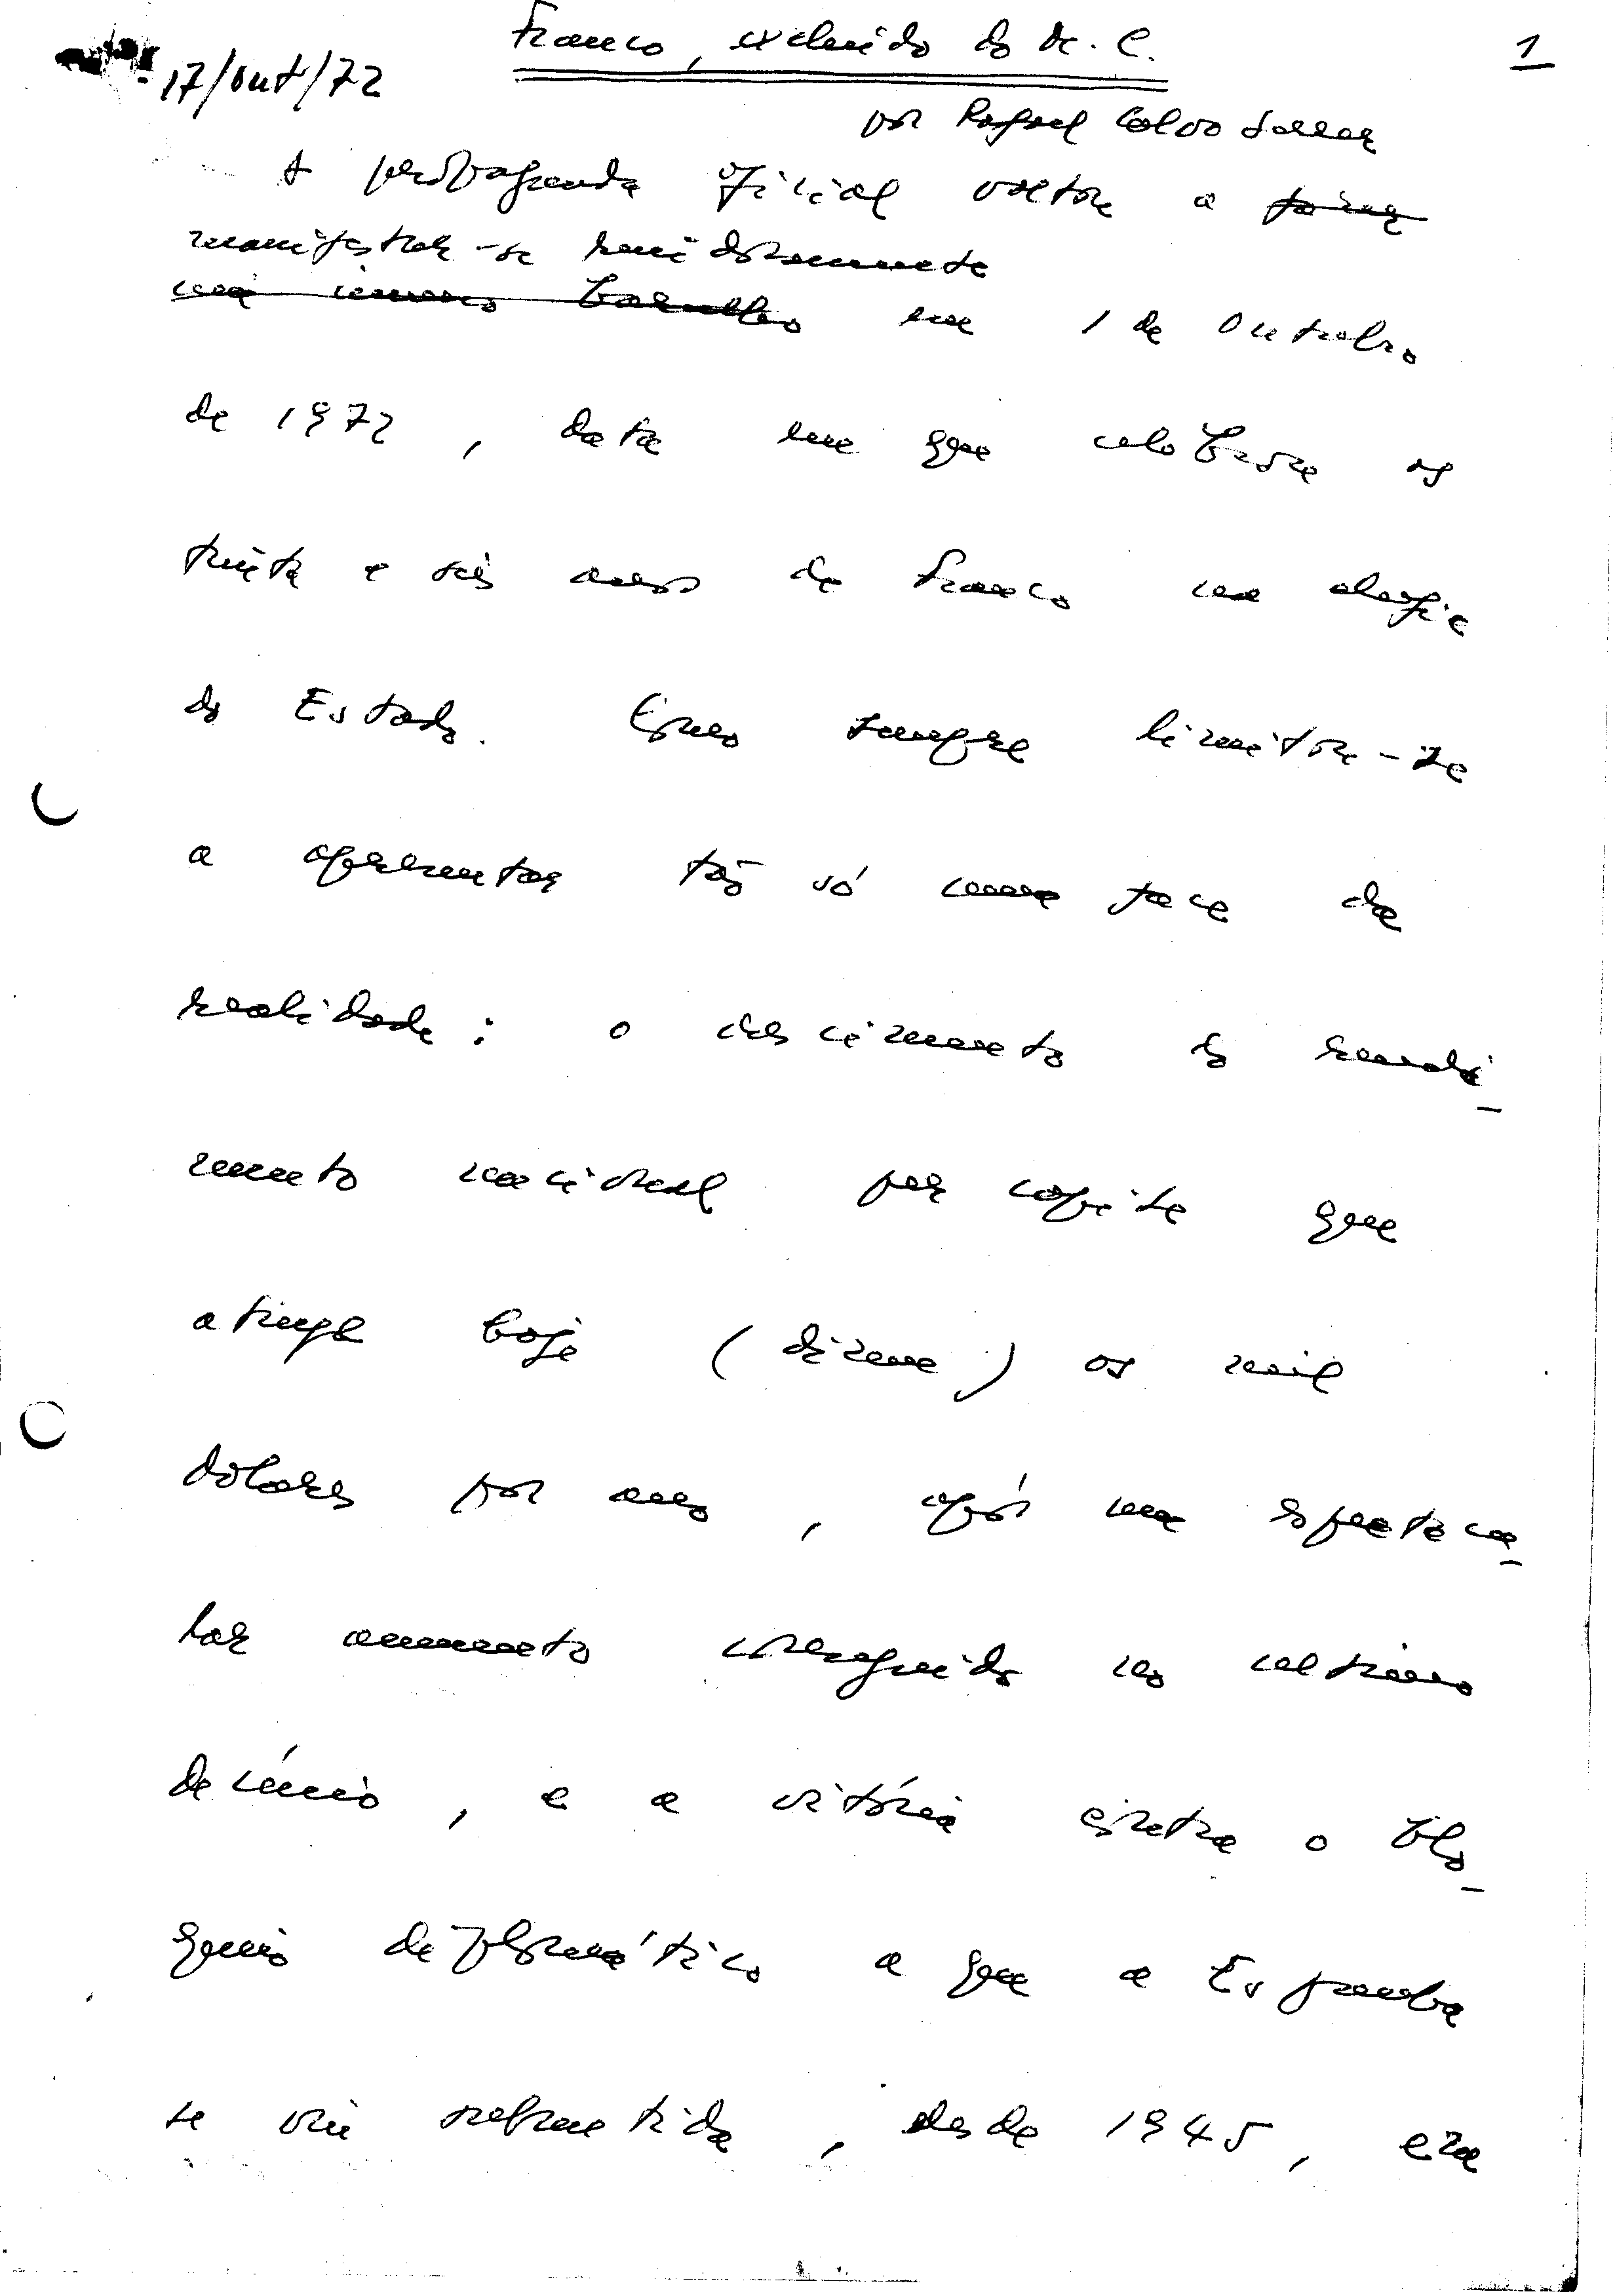 Franco, excluido do M. C.
1
17/out/72
por Rafael Calvo Serer
A propaganda oficial voltou a fazer
manifestar-se ruidosamente
um imenso barulho em 1 de outubro
de 1972, data em que celebrou os
trinta e seis anos de Franco na chefia
do Estado. Como sempre limitou-se
a apresentar tão só uma face da
realidade: o crescimento do rendi_
mento nacional per capite que
atinge hoje (dizem) os mil
dólares por ano, após um espetacu_
lar aumento conseguido no último
decénio, e a vitória contra o blo_
queio diplomático a que a Espanha
se viu submetida, desde 1945, em